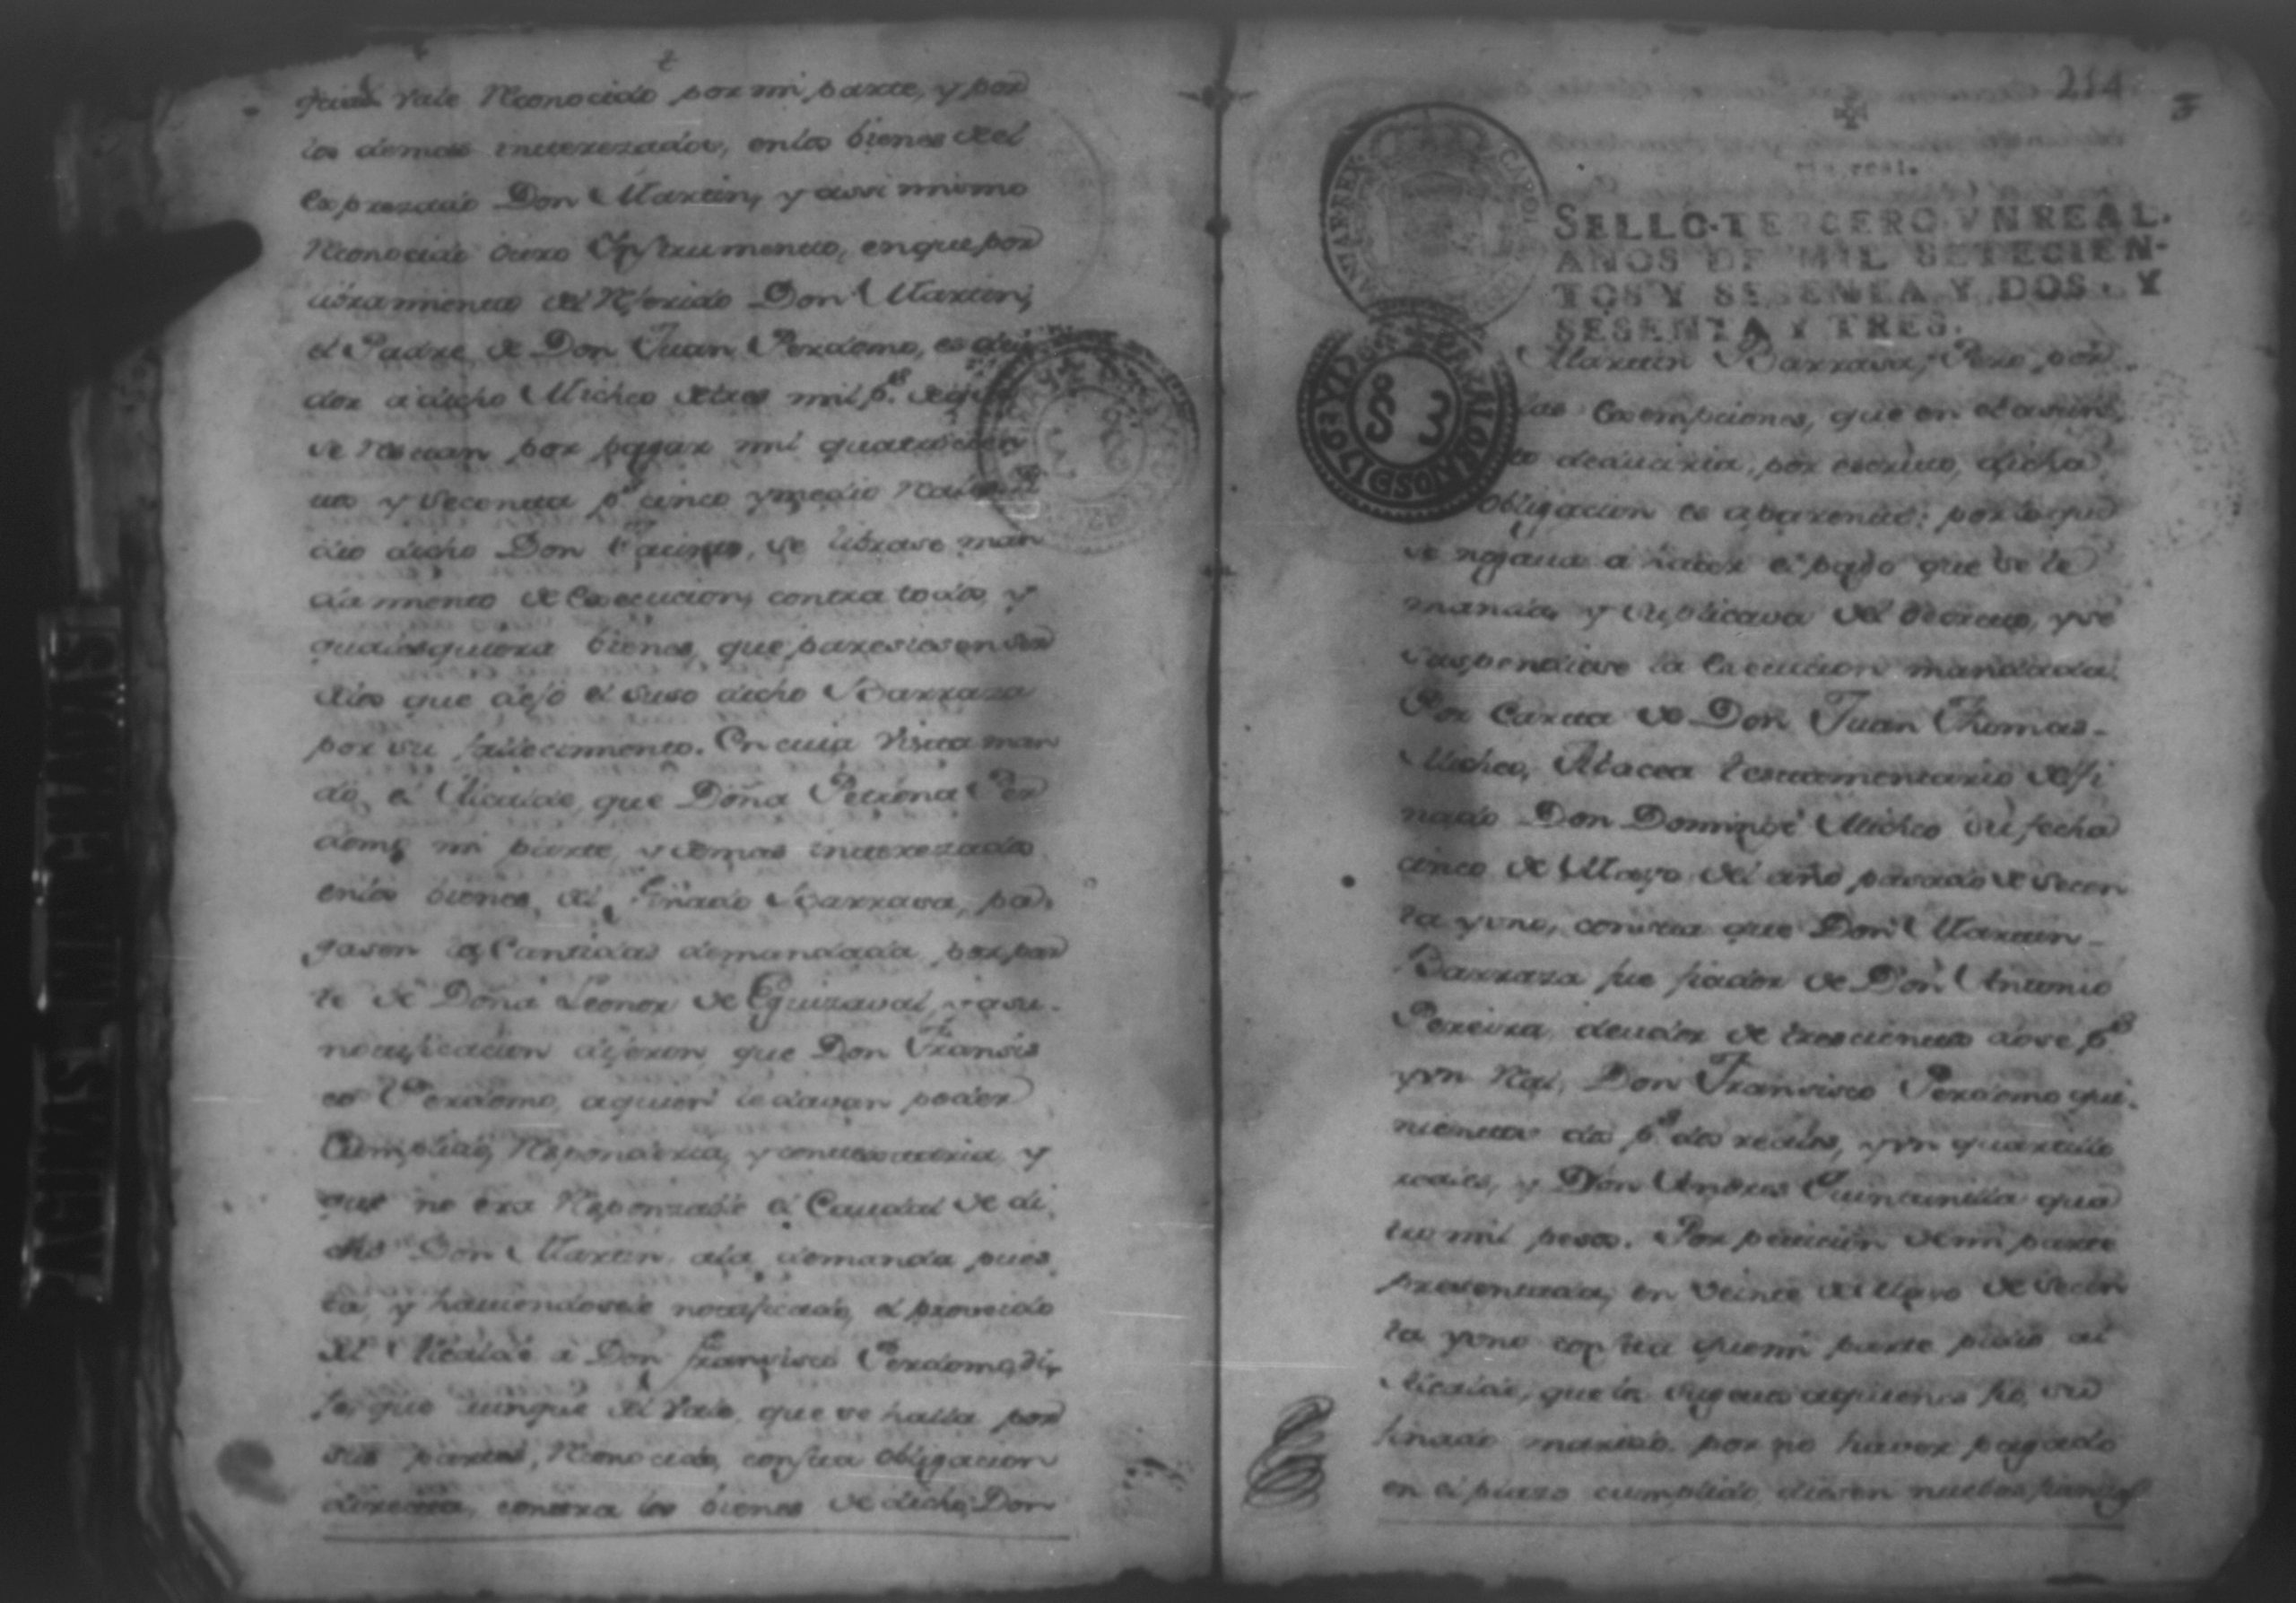 Vale Reconocido por mi parte, y por
los demas interezados, en los bienes del
Expresado Don Martin, y assi mismo
Reconocido otro Instrumento, en que por
libramiento del Referido Don Martin,
el Padre de Don Juan Perdomo, es deu
dor a dicho Micheo de tres mil p.s de que
se restan por pagar mil quatrocien
tos y secenta p.s cinco y medio Rea
dio dicho Don, se librase man
damiento de Execucion, contra todos, y
qualesquiera bienes, que paresiesen ser
delos que dejó el suso dicho Barraza
por su fallecimiento. En cuia Vista man
dó, el Alcalde, que Doña Petrona Per
domo mi parte, y demas interezados
en los bienes, del Finado Barrasa, pa
gasen la Cantidad demandada por par
te de Doña Leonor de Eguizaval, y a su
notificacion dijeron, que Don Fransis
co Perdomo, a quien le davan poder
Cumplido, Responderia, y contestaria, y
que no era Responzable el Caudal de di
cho Don Martin, ala demanda pues
ta, y haviendosele notificado, el proveido
del Alcalde à Don Fransisco Perdomo, di
jo, que aunque del Vale, que se halla por
sus partes, Reconocido, consta obligacion
directa, contra los bienes de dicho Don
214
SELLO TERCERO VN REAL.
AÑOS DE MIL SETECIEN-
TOS Y SESENTA Y DOS, Y
SESENTA Y TRES.
Martin Barrasa, Pero por
las Exempciones, que en el asun
to deduciria, por escrito, dicha
Obligacion es aparente: por lo que
se negava a haser el pago que se le
manda, y suplicava del decreto, y se
suspendiese la Execucion mandada.
Por Carta de Don Juan Thomas
Micheo, Albacea testamentario del fi
nado Don Domingo Micheo su fecha
cinco de Mayo del año pasado de secen
ta y uno, consta que Don Martin
Barraza fue fiador de Don Antonio
Pereira, deudor de trescientos dose p.s
y un Real, Don Fransisco Perdomo qui
nientos dos p.s dos reales, y un quartillo
reales, y Don Andres Quintanilla qua
tro mil pesos. Por peticion de mi parte
presentada, en veinte de Mayo de secen
ta y uno consta que mi parte pidio al
Alcalde, que los sugetos a quienes fió, su
finado marido, por no haver pagado
en el plazo cumplido, diesen nuebas fianzas